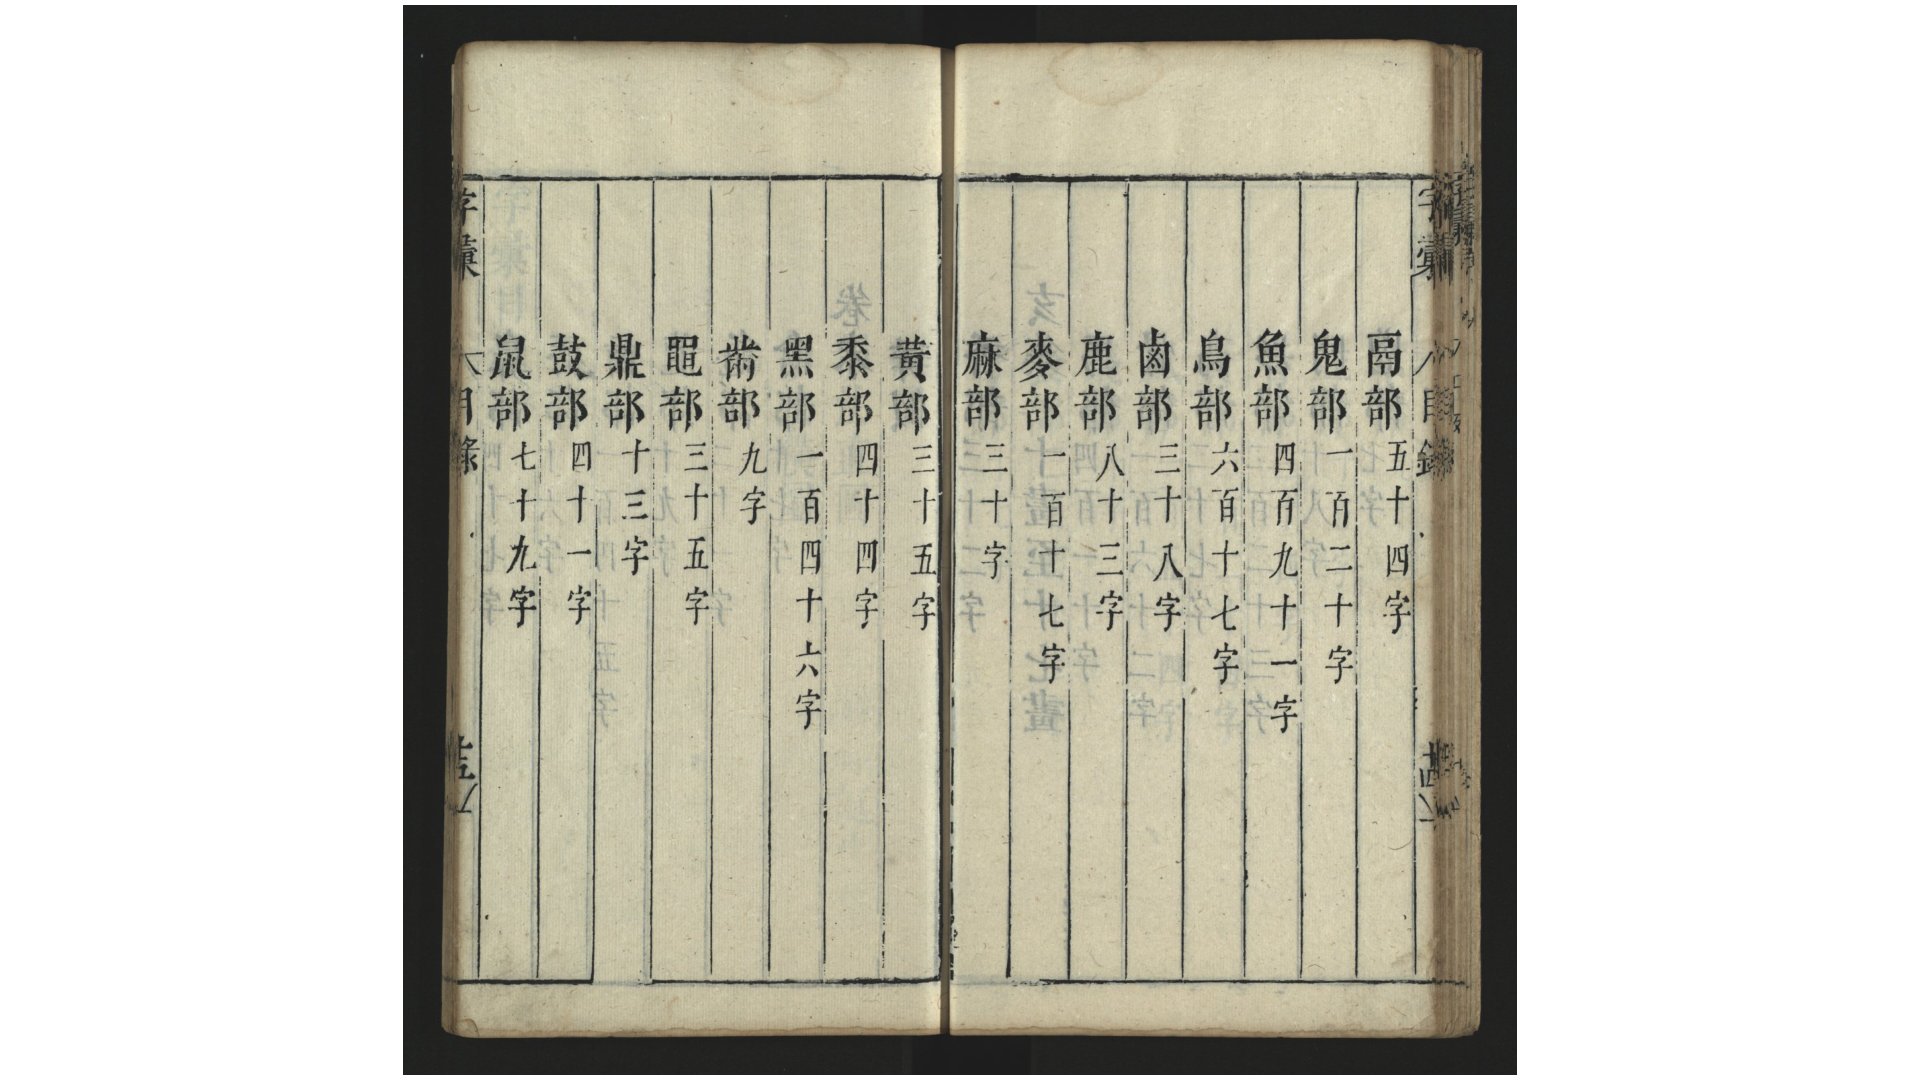 鬲部 五十四字
鬼部 一百二十字
魚部 四百九十一字
鳥部 六百十七字
鹵部 三十八字
鹿部 八十三字
麥部 一百十七字
麻部 三十字
黃部 三十五字
黍部 四十四字
黑部 一百四十六字
黹部 九字
黽部 三十五字
鼎部 十三字
鼓部 四十一字
鼠部 七十九字